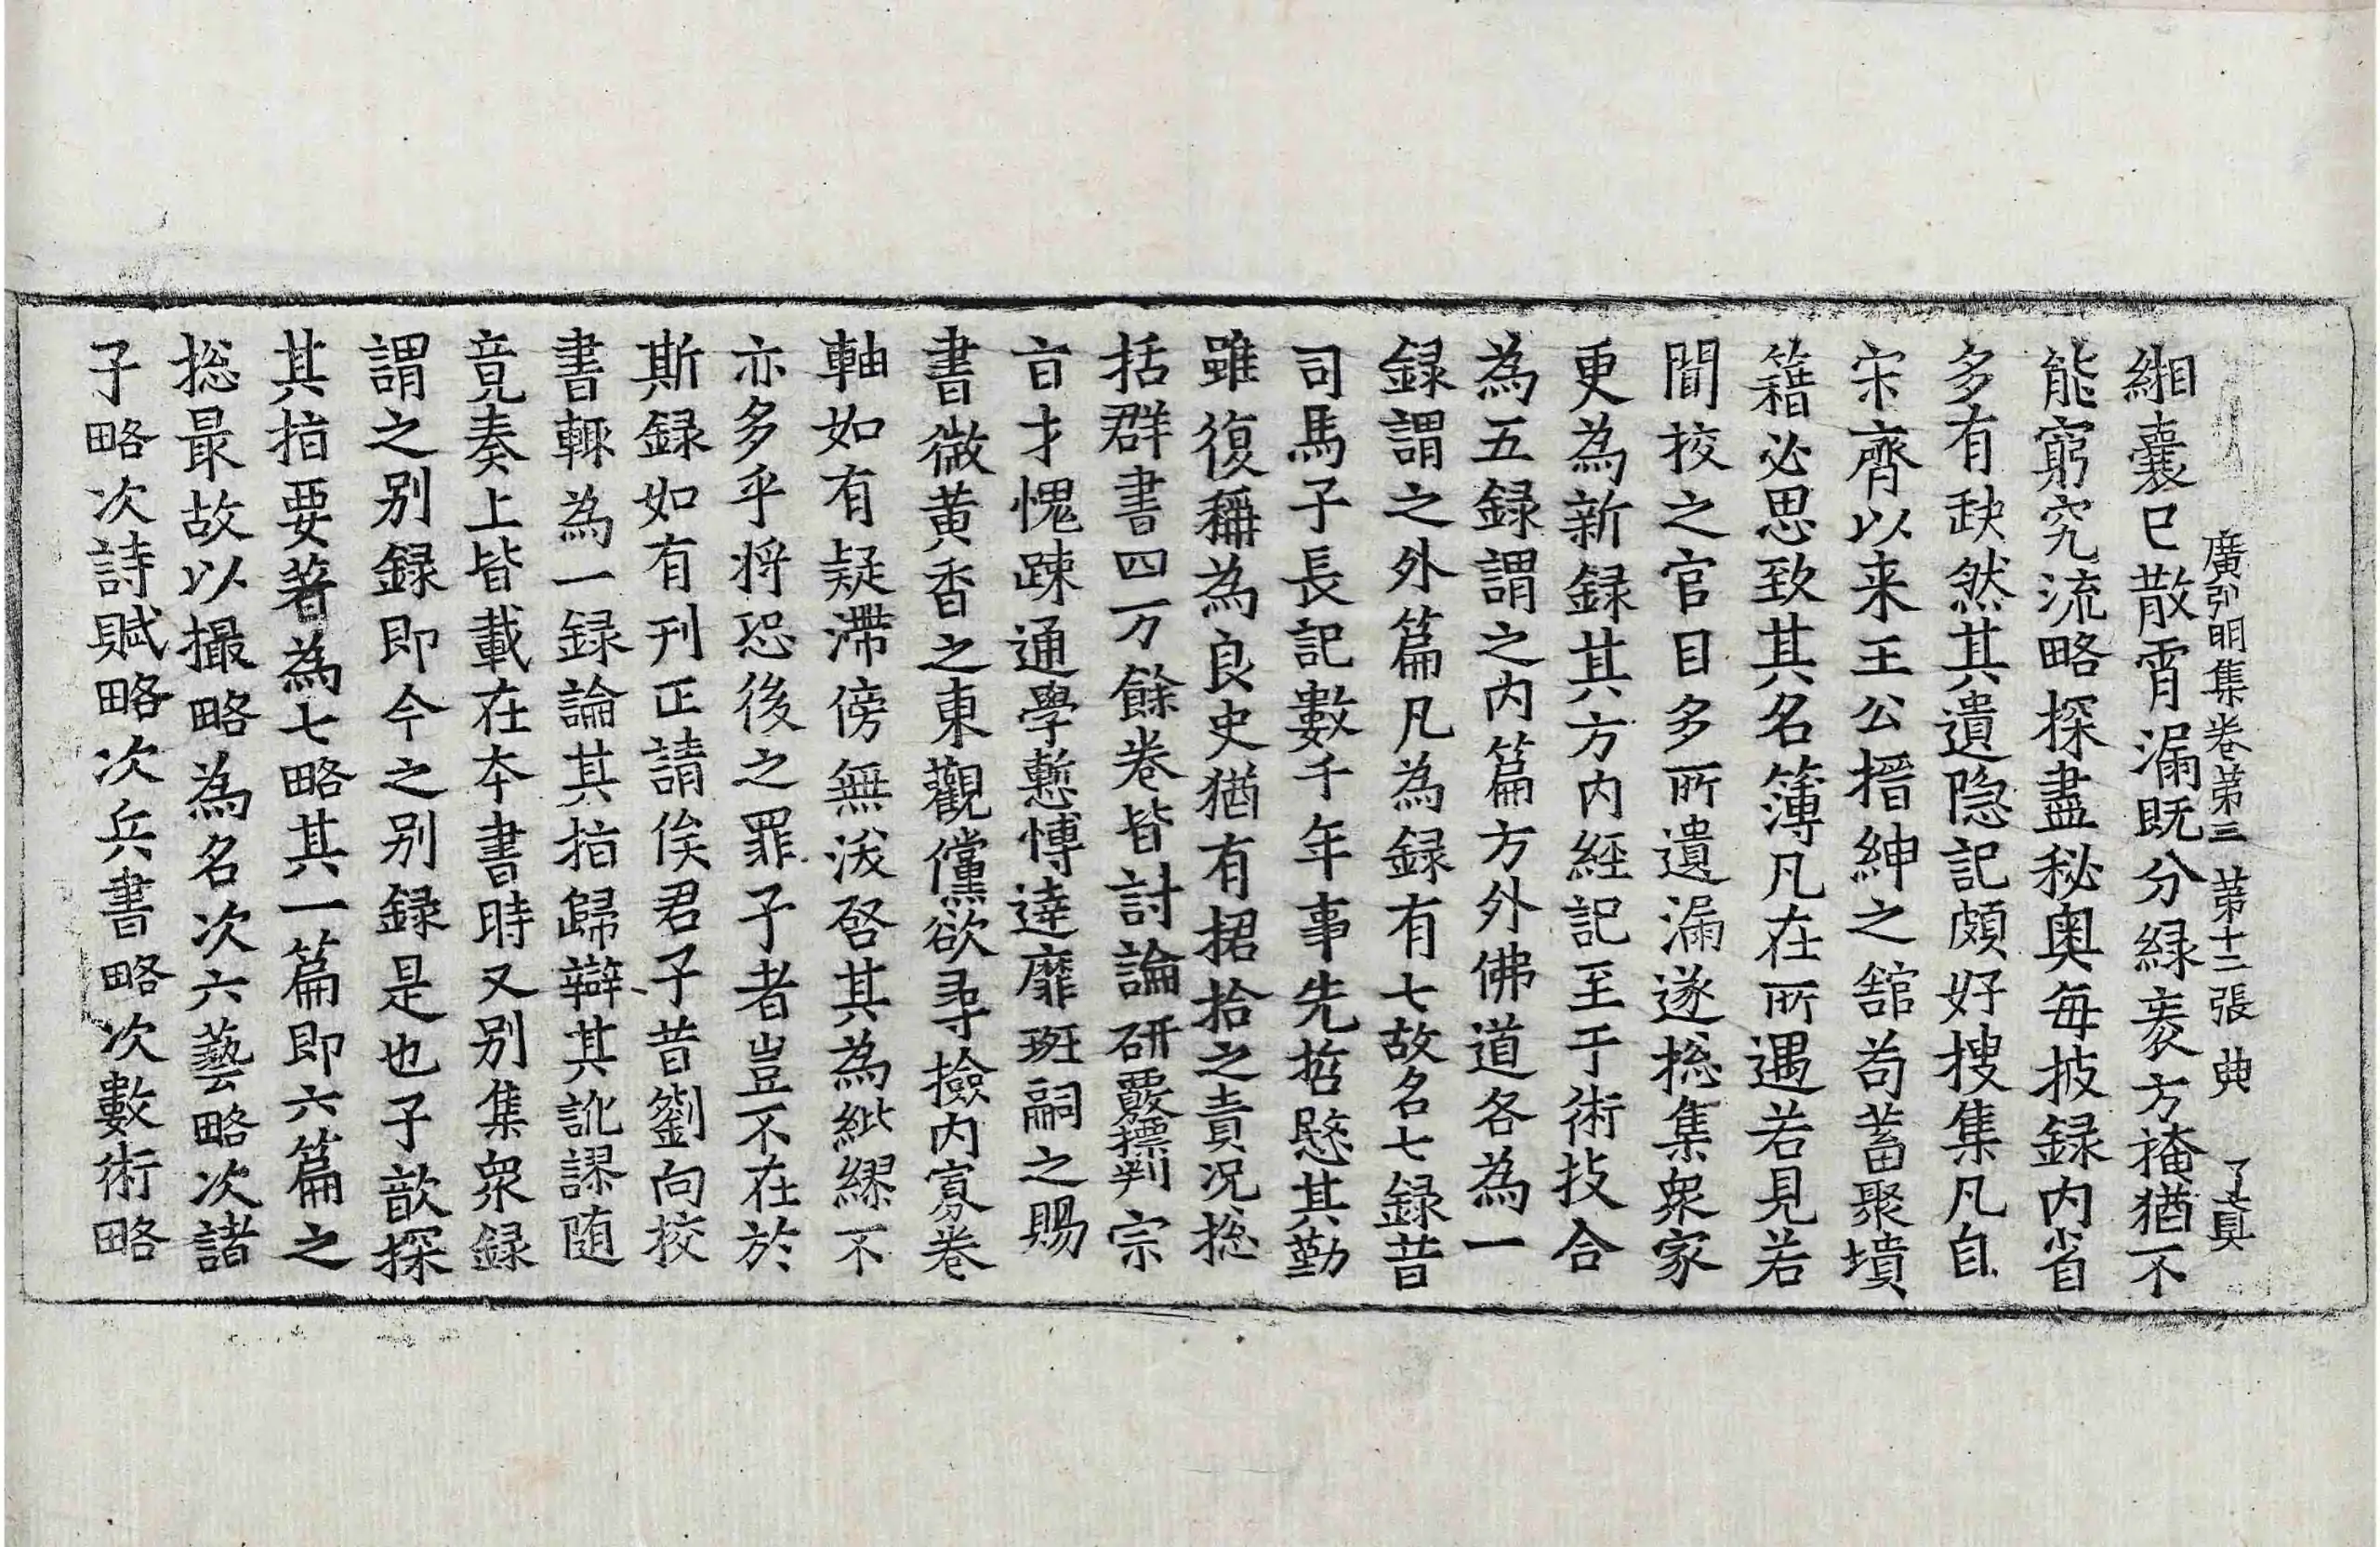 廣弘明集卷第三 第十二張 典 了真
緗囊已散霄漏既分緑袠方掩猶不
能窮究流略探盡秘奥每披録内省
多有缺然其遺隐記頗好搜集凡自
宋齊以来王公搢紳之舘苟蓄聚墳
籍必思致其名簿凡在所遇若見若
聞挍之官目多所遺漏遂捴集衆家
更為新録其方内經記至于術技合
為五録謂之内篇方外佛道各為一
録謂之外篇凡為録有七故名七録昔
司馬子長記數千年事先哲愍其勤
雖復稱為良史猶有捃拾之責况捴
括群書四万餘卷皆討論研覈摽判宗
旨才愧踈通學慙愽達靡班嗣之賜
書微黄香之東觀儻欲尋撿内寡卷
軸如有疑滯傍無沷啓其為紕繆不
亦多乎将恐後之罪子者豈不在於
斯録如有刊正請俟君子昔劉向挍
書輙為一録論其指歸辯其訛謬随
竟奏上皆載在夲書時又别集衆録
謂之别録即今之别録是也子歆探
其指要著為七略其一篇即六篇之
捴最故以撮略為名次六藝略次諸
子略次詩賦略次兵書略次數術略